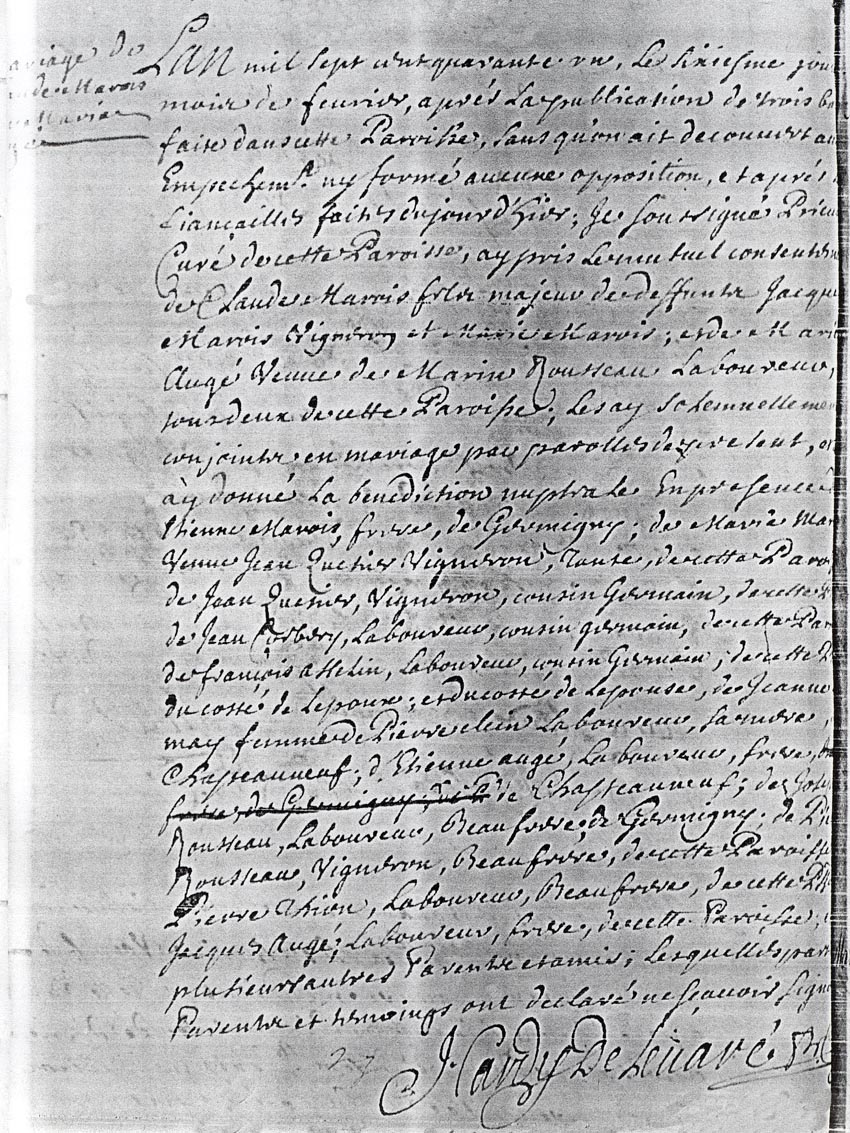 ariage de
ude Marois
Marie
L'an mil sept cent quarante un, le sixiesme jour
mois de feurier, aprés la publication de trois b
faite dans cette Paroisse, sans qu'on ait decouvert au
Empechemt. ny formé aucune opposition, et aprés
fiançailles faites du jour d'hier; Je soussigné Prieu
Curé de cette Paroisse, ay pris le mutuel consentem
de Claude Marois fils majeur de deffunts Jacque
Marois Vigneron et Marie Marois; et de Mari
Augé Veuve de Marin Rousseau Laboureur,
tous deux de cette Paroisse; les ay solemnelleme
conjoints en mariage par parolles de present, et
ay donné la benediction nuptiale En presence d
Etienne Marois, frere, de Germigny; de Marie Mar
Veuve Jean Quetier Vigneron, Tante, de cette Paroi
de Jean Quetier, Vigneron, cousin Germain, de cette
de Jean Corbery, Laboureur, cousin germain, de cette Par
de françois asselin, Laboureur, cousin Germain; de cette
du costé de Lepoux; et du costé de Lepouse, de Jeanne
may femme de Pierre clein Laboureur, sa mere,
Chasteauneuf; d'Etienne augé, Laboureur, frere,
frere, de Germigny; de Chasteauneuf; de Jos
Rousseau, Laboureur, Beaufrere, de Germigny; de Pi
Rousseau, Vigneron, Beaufrere, de cette Paroisse
Pierre Thion, Laboureur, Beaufrere, de cette P
Jacques Augé; Laboureur, frere, de cette Paroisse,
plusieurs autres Parents et amis; Lesquelles part
Parents et temoings ont declaré ne sçavoir signe
J. Hardy De Levaré